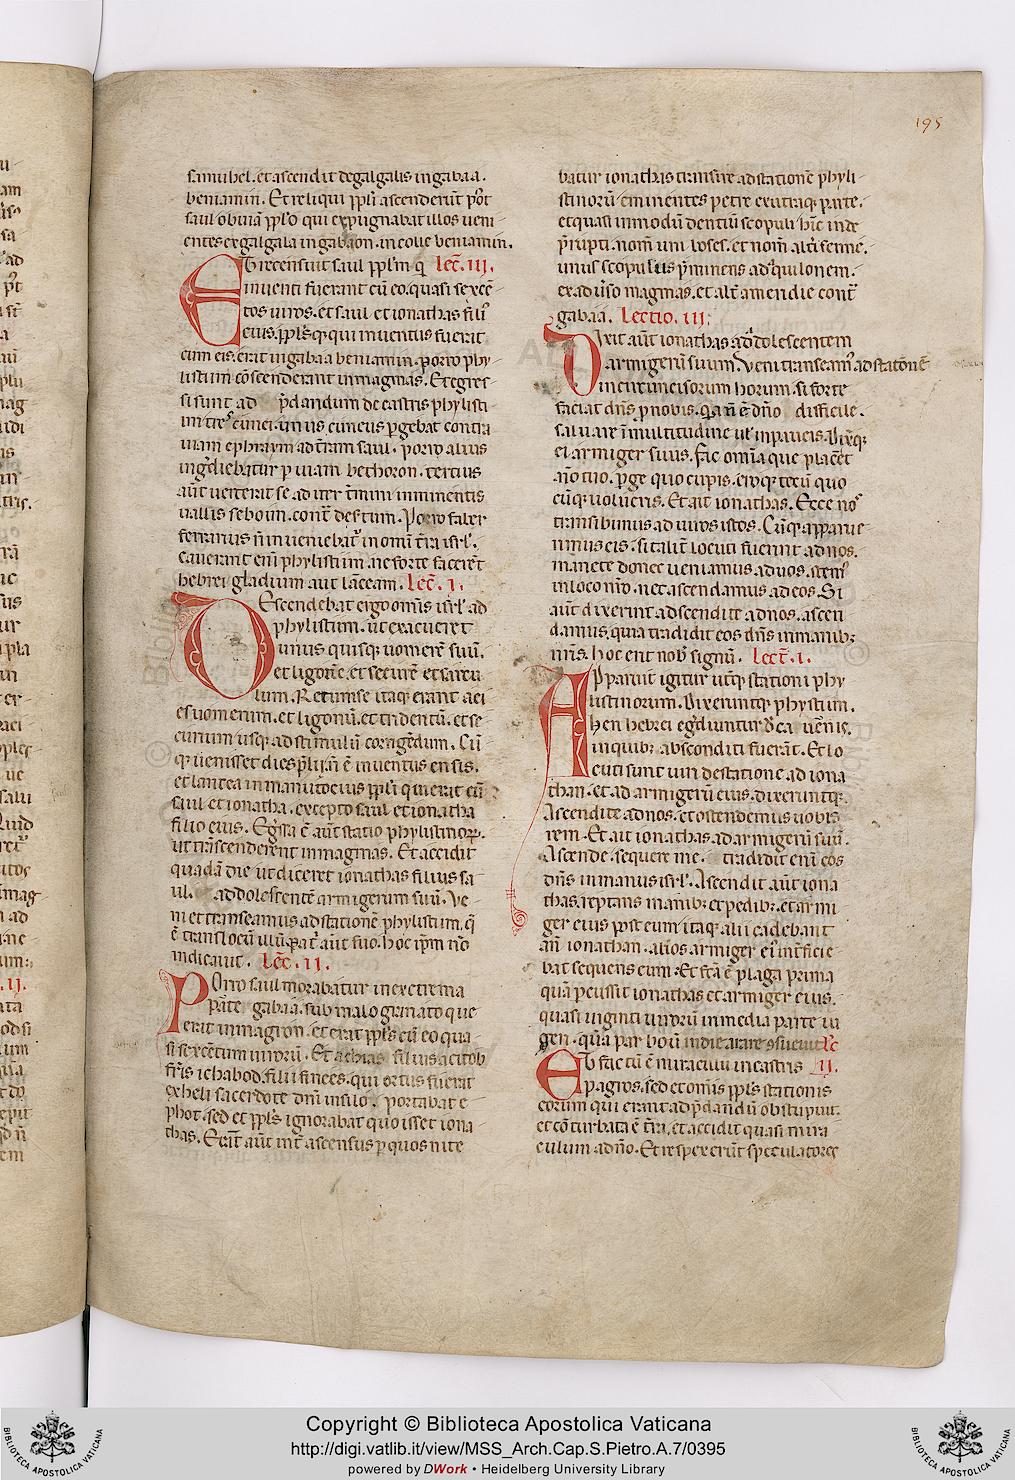 195
samuhel. et ascendit de galgalis in gabaa.
beniamin. Et reliqui ppl̃i ascenderũt p̃ost
saul obuiã pp̃lo qui expugnabat illos ueni-
entes ex galgala in gabaon. in colle beniamin.
Et recensuit saul pp̃lm q̃ Lec̃. III.
inuenti fuerant cũ eo. quasi sexcẽ-
tos uiros. et saul et ionathas filiꝰ
eius. pp̃lsq̃ qui inuentus fuerit
cum eis. erat in gabaa beniamin. porro phy-
listiim cõscenderant in magmas. Et egres-
si sunt ad p̃dandum de castris phylisti-
im tres cunei. unus cuneus p̃gebat contra
uiam ephraym ad t̃ram saul. porro alius
ingr̃diebatur p uiam bethoron. tertius
aũt uerterat se ad iter t̃mini imminentis
uallis seboim. cont̃ des̃tum. Porro faber
ferrarius ñ inueniebat̃ in omni t̃ra isrl̃.
cauerant eñi phylistiim. ne forte facerẽt
hebrei gladium aut lãceam. Lec̃. I.
Descendebat ergo omñis isrl̃ ad
phylistiim. ut exacueret
unus quisq; uomerẽ suũ.
et ligonẽ. et securẽ et sarcu-
lum. Retunse itaq; erant aci-
es uomerum. et ligonũ. et tridentũ. et se-
curium usq; ad stimulũ corrig̃dum. Cũ
q; uenisset dies p̃lij. ñ ẽ inuentus ensis.
et lancea in manu tocius ppl̃i qui erat cũ
saul et ionatha. excepto saul et ionatha
filio eius. Eg̃ssa ẽ aũt statio phylistinoꝝ.
ut trãscenderent in magmas. Et accidit
quadã die ut diceret ionathas filius sa-
ul. ad adolescentẽ armigerum suũ. Ve-
ni et transeamus ad stationẽ phylistiim. q̃
ẽ trans locũ illũ. Pat̃ aũt suo. hoc ip̃m nõ
indicauit. Lec̃. II.
Porro saul morabatur in extrema
parte gabaa. sub malogranato que
erat in magron. et erat pp̃ls cũ eo qua-
si sexcẽtum uirorũ. Et achias filius acitob
fr̃is ichabod. filii finees. qui ortus fuerat
ex heli sacerdote dñi in silo. portabat e-
phot. sed et pp̃ls ignorabat quo isset iona-
thas. Erãt aũt int̃ ascensus p quos nite-
batur ionathas transire ad stationẽ phyli-
stinorũ. eminentes petre ex utraq; parte.
et quasi in modũ dentiũ scopuli hĩc inde
p̃rupti. nom̃ uni boses. et nom̃ alt̃i senne.
unus scopulus p̃minens ad aquilonem.
ex aduerso magmas. et alt̃ a meridie cont̃
gabaa. Lectio. III.
Dixit aũt ionathas ad adolescentem
armigerũ suum. Veni transeamꝰ ad statõnẽ
incircuncisorum horum. si forte
faciat dñs p nobis. q̃a ñ ẽ dño difficile.
saluare ĩ multitudine ul̃ in paucis. Dixitq;
ei armiger suus. Fac omnia que placẽt
aĩo tuo. p̃ge quo cupis. eroq; tecũ quo
cũq; uolueris. Et ait ionathas. Ecce nos
transibimus ad uiros istos. Cũq; apparue-
rimus eis. si talit̃ locuti fuerint ad nos.
manete donec ueniamus ad uos. stemꝰ
in loco nr̃o. nec ascendamus ad eos. Si
aũt dixerint ascendite ad nos. ascen-
damus. quia tradidit eos dñs in manibꝫ
nr̃is. hoc erit nob̃ signũ. Lect̃. I.
Apparuit igitur ut̃q; stationi phy-
listinorum. Dixeruntq; phystiim.
hen hebrei eg̃diuntur de cauernis.
in quibꝫ absconditi fuerãt. Et lo-
cuti sunt uiri de statione ad iona-
than. et ad armigerũ eius. dixeruntq;.
Ascendite ad nos. et ostendemus uobis
rem. Et ait ionathas. ad armigerũ suũ.
Ascende. sequere me. tradidit eñi eos
dñs in manus isrl̃. Ascendit aũt iona-
thas. reptans manibꝫ et pedibꝫ. et armi-
ger eius post eum. itaq; alii cadebant
añ ionathan. alios armiger eiꝰ int̃ficie-
bat sequens eum. Et fc̃a ẽ plaga prima
quã peussit ionathas et armiger eius.
quasi uiginti uirorũ in media parte iu-
geri. quã par boũ in die arare cõsueuit. Lc̃
Et factũ ẽ miraculũ in castris II.
p agros. sed et omñis pp̃ls stationis
eorum qui erant ad p̃dandũ obstupuit.
et cõturbata ẽ t̃ra. et accidit quasi mira-
culum a dño. Et respexerũt speculatores
Copyright © Biblioteca Apostolica Vaticana
http://digi.vatlib.it/view/MSS_Arch.Cap.S.Pietro.A.7/0395
powered by DWork • Heidelberg University Library